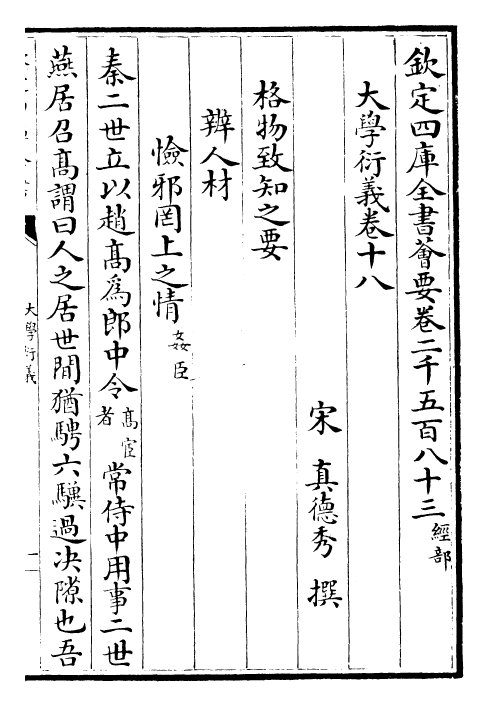 欽定四庫全書薈要卷二千五百八十三 經部
大學衍義卷十八
宋 真德秀 撰
格物致知之要
辨人材
憸邪罔上之情 姦臣
秦二世立以趙髙為郎中令 髙宦者 常侍中用事二世
燕居召髙謂曰人之居世間猶騁六驥過决隙也吾
大學衍義
一